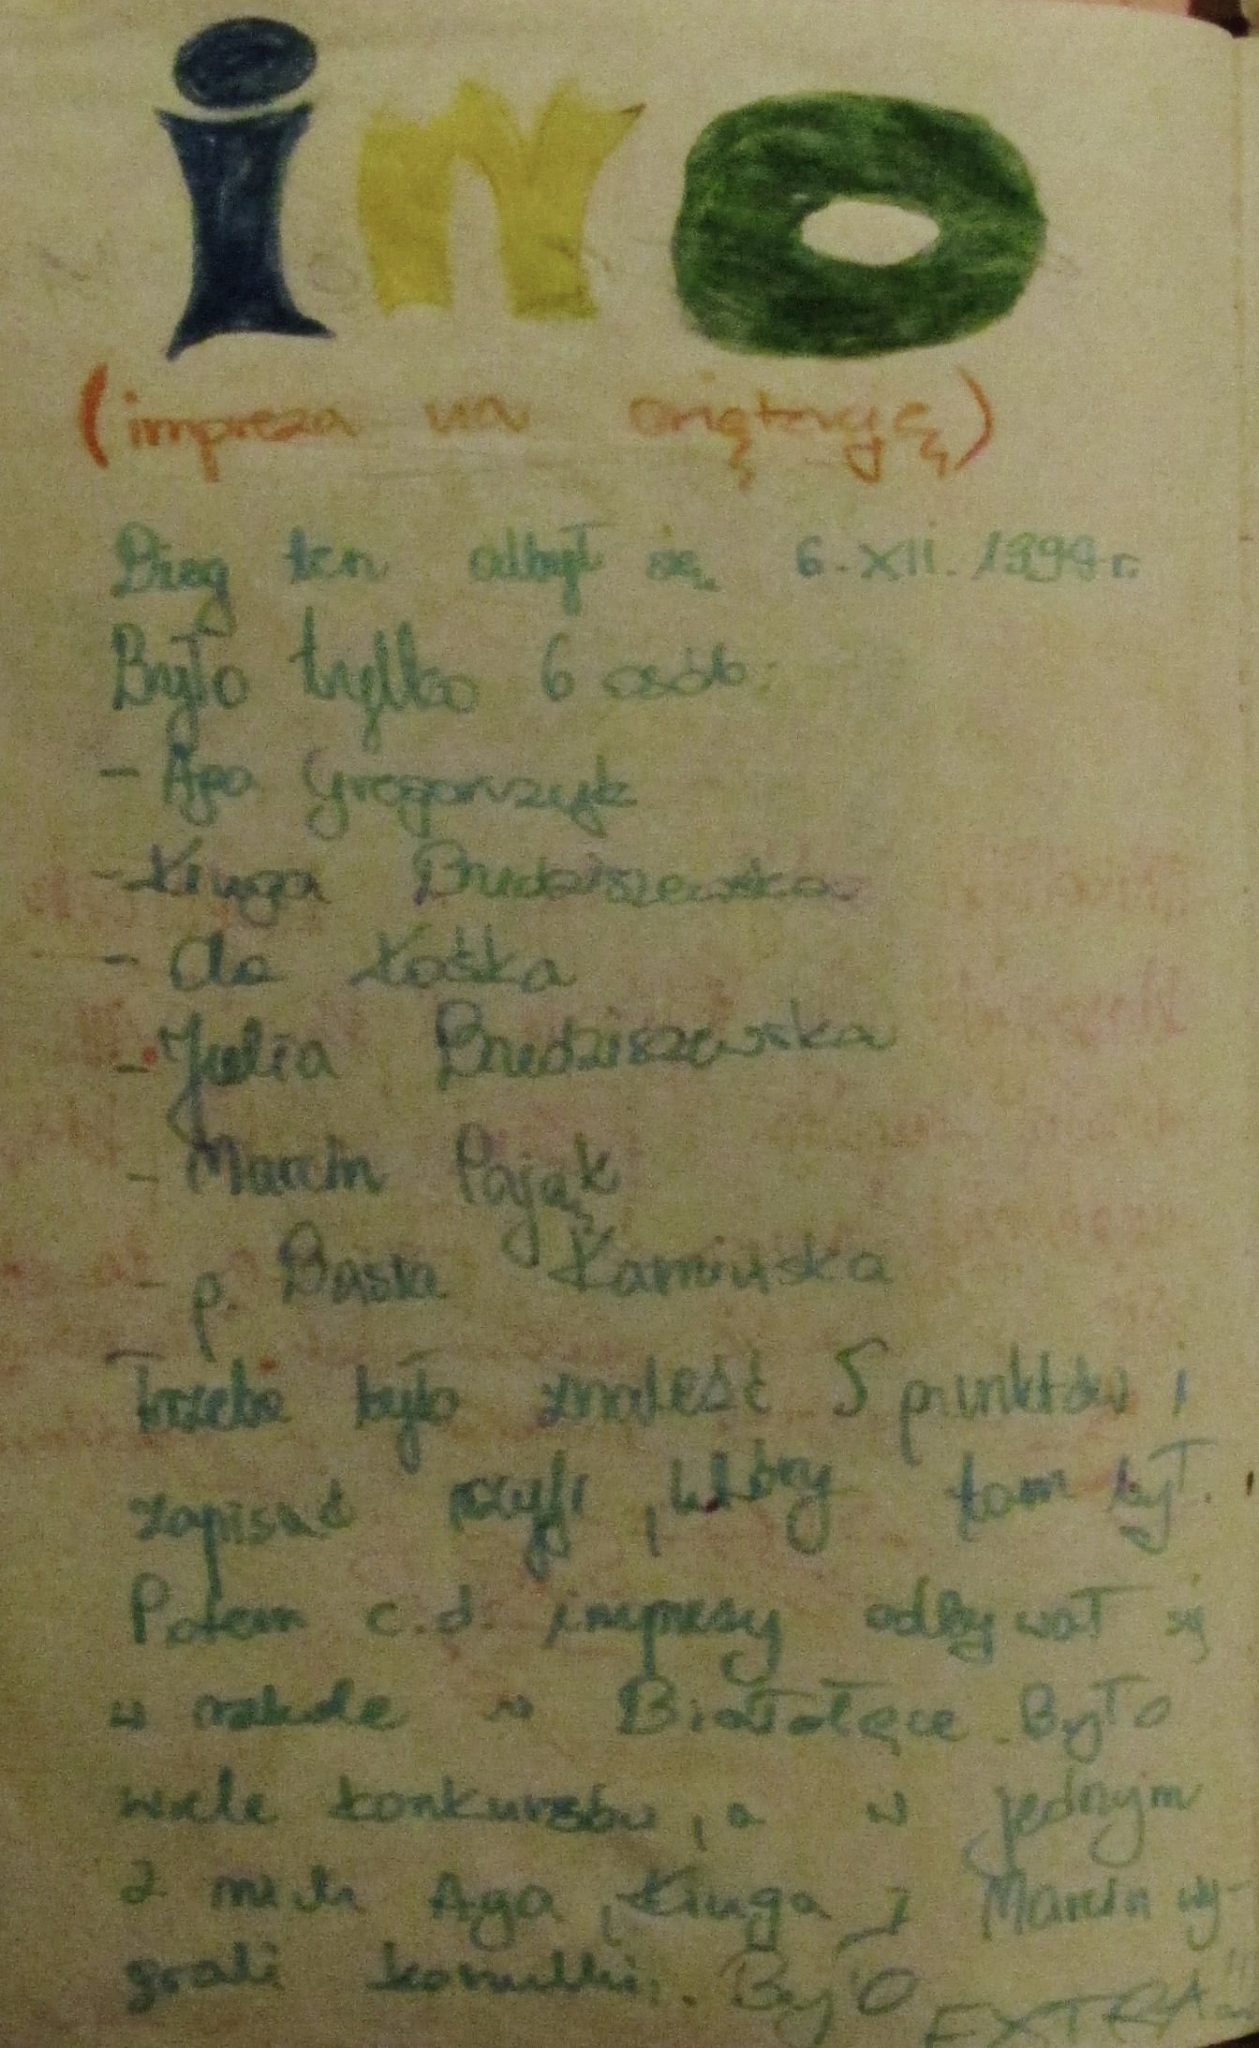 ino
(impreza na oriętację)
Bieg ten odbył się 6.XII.1994r.
Było tylko 6 osób:
- Aga Gregorczyk
- Kinga Brudziszewska
- Ola Kośka
- Julia Brudziszewska
- Marcin Pająk
- p. Basia Kamińska
Trzeba było znaleść 5 punktów i
zapisać szyfr, który tam był.
Potem c.d. imprezy odbywał się
w szkole w Białołęce. Było
wiele konkursów, a w jednym
z nich Aga, Kinga i Marcin wy-
grali koszulki. Było
EXTRA!!!